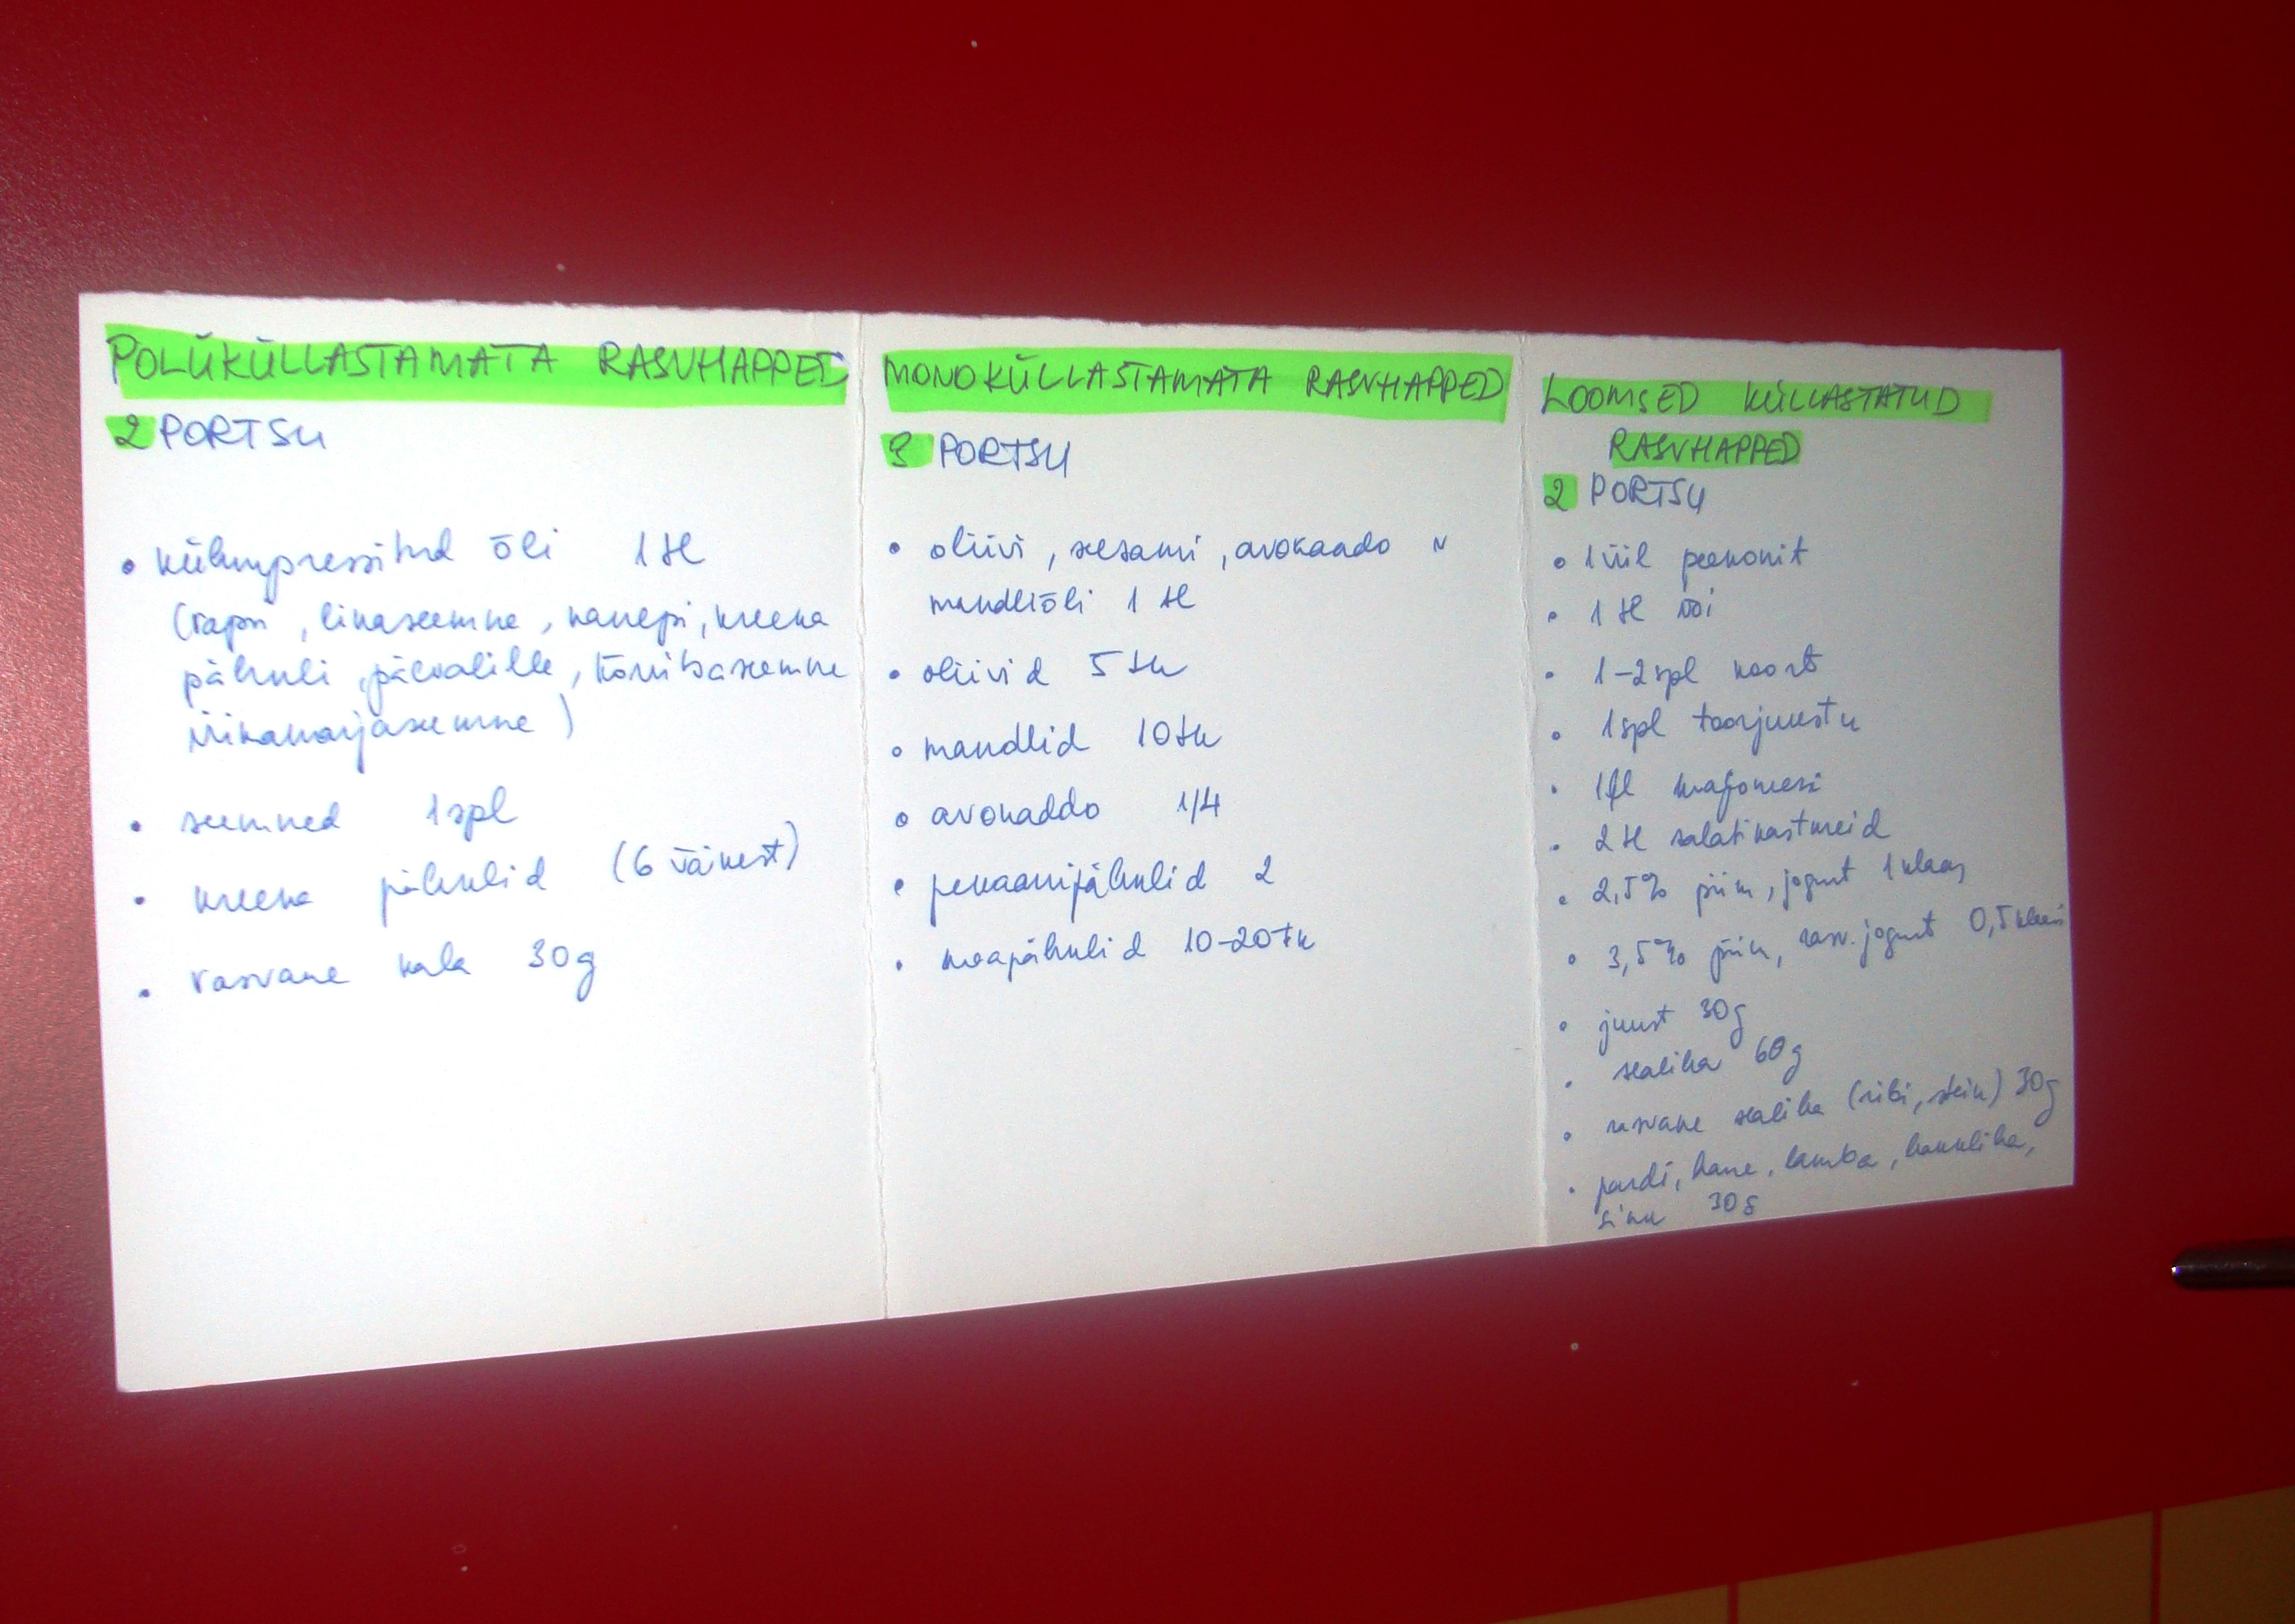 POLÜKÜLLASTAMATA RASVHAPPED
2 PORTSU
• külmpressitud õli 1 tl
(rapsi, linaseemne, kanepi, kreeka
pähkli, päevalille, kõrvitsaseemne
viinamarjaseemne)
• seemned 1 spl
• kreeka pähklid (6 väikest)
• rasvane kala 30g
MONOKÜLLASTAMATA RASVHAPPED
3 PORTSU
• oliivi, seesami, avokaado v
mandliõli 1 tl
• oliivid 5 tk
• mandlid 10 tk
• avokaddo 1/4
• pekaanipähklid 2
• maapähklid 10-20 tk
LOOMSED KÜLLASTATUD
RASVHAPPED
2 PORTSU
• 1 viil peekonit
• 1 tl või
• 1-2 spl koort
• 1 spl toorjuustu
• 1 tl majoneesi
• 2 tl salatikastmeid
• 2,5% piim, jogurt 1 klaas
• 3,5% piim, rasv. jogurt 0,5 klaasi
• juust 30g
• sealiha 60g
• rasvane sealiha (ribi, steik) 30g
• pardi, hane, lamba, hakkliha,
sink 30g